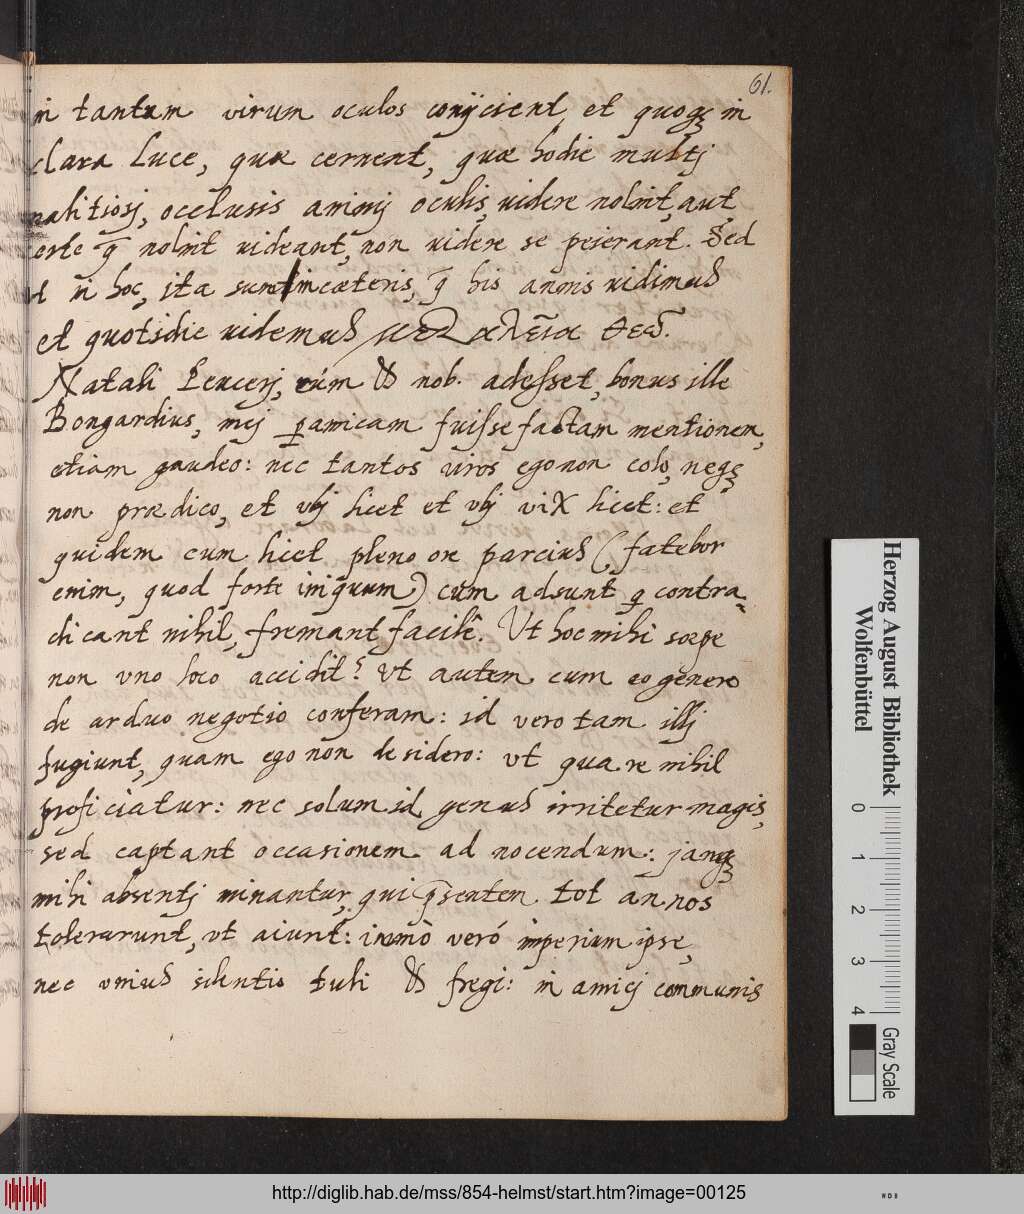 61.
in tantum virum oculos conijcient, et quoq; in
clara Luce, quæ cernent, quæ hodie multj
malitiosj, occlusis animj oculis, videre nolint, aut,
certe q̄ nolint videant, non videre se peierant. Sed
vt in hoc, ita sunt in cæteris, q̄ his annis vidimus
et quotidie videmus
Natali Leucerj, cúm nob. adesset, bonus ille
Bongardius, mej p amicam fuisse factam mentionem,
etiam gaudeo: nec tantos viros ego non colo, neq;
non prædico, et vbj licet et vbj vix licet: et
quidem cum licet pleno ore parcius (fatebor
enim, quod forte iniquum) cùm adsunt q contra-
dicant nihil, fremant facilè. Vt hoc mihi sæpe
non vno loco accidit? Vt autem cum eo genere
de arduo negotio conferam: id vero tam illj
fugiunt, quam ego non desidero: vt qua re nihil
proficiatur: nec solum id genus irritetur magis,
sed captant occasionem ad nocendum: jamq;
mihi absentj minantur, qui p̄sentem tot annos
tolerarunt, vt aiunt: immò veró imperium ipse,
nec vnius silentio tuli fregi: in amicj communis
Herzog August Bibliothek
Wolfenbüttel
0 1 2 3 4
Gray Scale
http://diglib.hab.de/mss/854-helmst/start.htm?image=00125
WDB